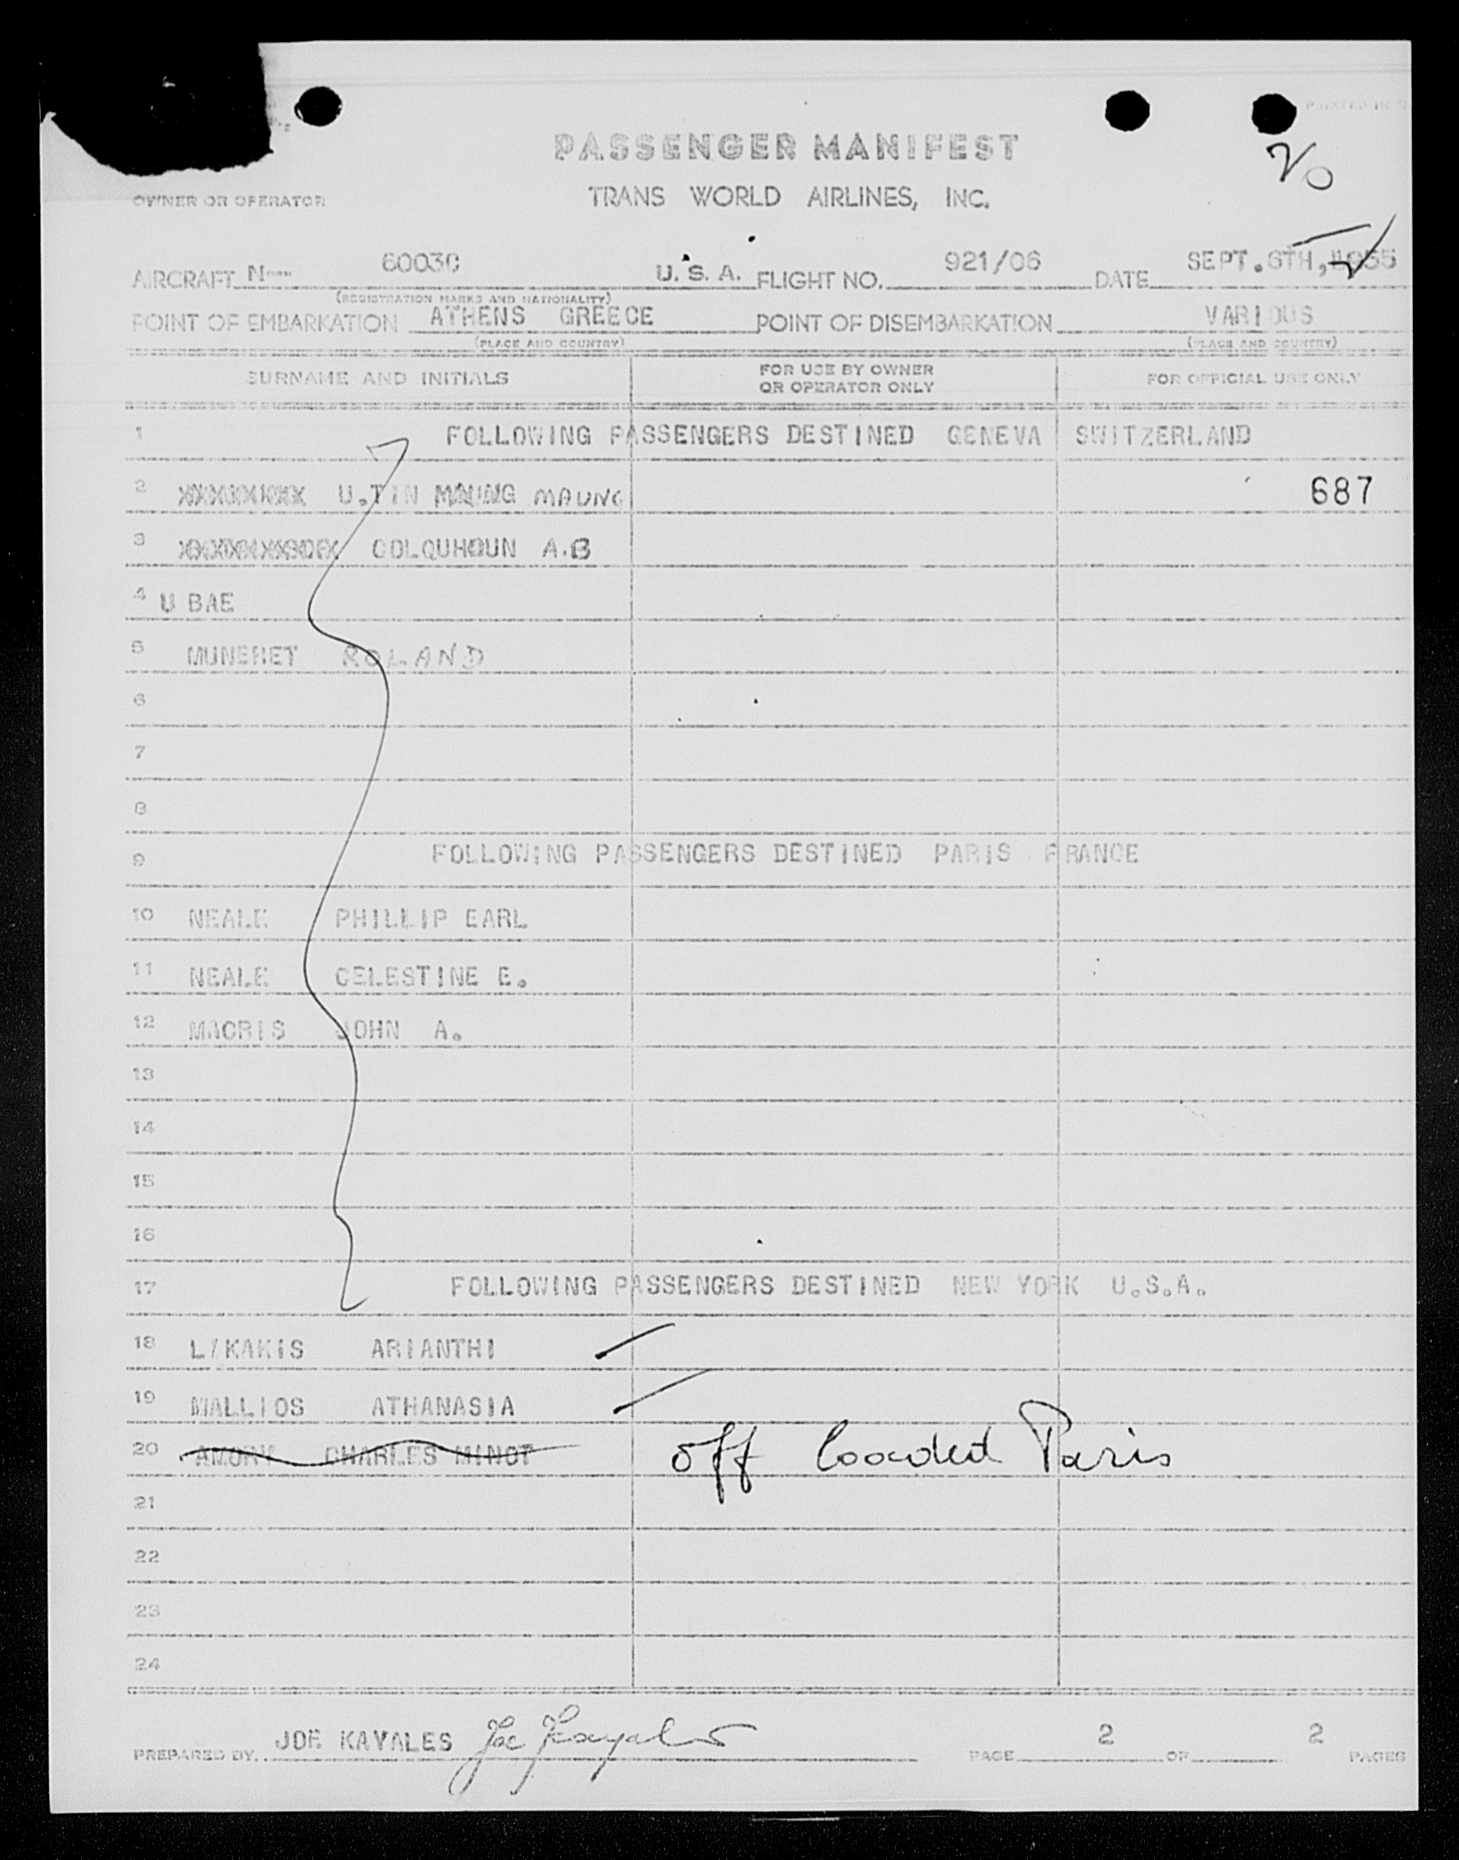 PRINTED IN
PASSENGER MANIFEST
20
OWNER OR OPERATOR
TRANS WORLD AIRLINES, INC.
AIRCRAFT N 6003C U.S.A. FLIGHT NO. 921/06 DATE SEPT.6TH,1955
(REGISTRATION MARKS AND NATIONALITY)
POINT OF EMBARKATION ATHENS GREECE POINT OF DISEMBARKATION VARIOUS
(PLACE AND COUNTRY) (PLACE AND COUNTRY)
SURNAME AND INITIALS FOR USE BY OWNER OR OPERATOR ONLY FOR OFFICIAL USE ONLY
1 FOLLOWING PASSENGERS DESTINED GENEVA SWITZERLAND
2 U.TIN MAUNG MAUNG 687
3 COLQUHOUN A.B
4 U BAE
5 MUNERET ROLAND
6
7
8
9 FOLLOWING PASSENGERS DESTINED PARIS FRANCE
10 NEALE PHILLIP EARL
11 NEALE CELESTINE E.
12 MACRIS JOHN A.
13
14
15
16
17 FOLLOWING PASSENGERS DESTINED NEW YORK U.S.A.
18 LIKAKIS ARIANTHI
19 MALLIOS ATHANASIA
20 AMORY CHARLES MINOT off loaded Paris
21
22
23
24
PREPARED BY. JOE KAVALES Joe Kavales PAGE 2 OF 2 PAGES